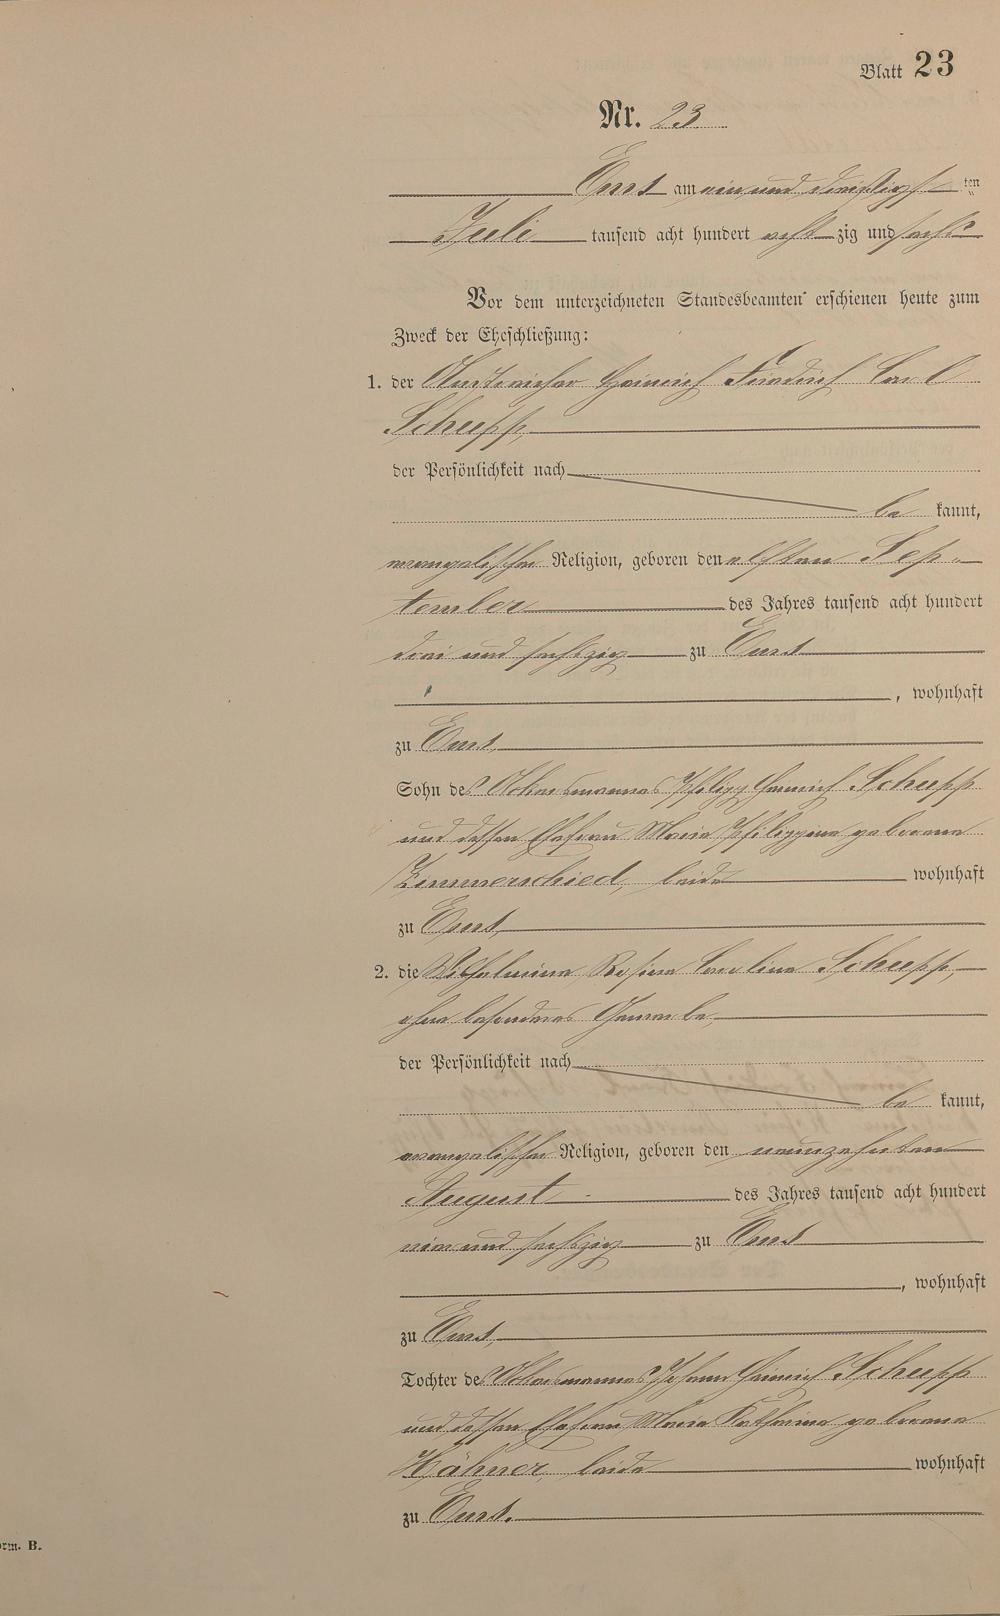 Blatt 23
Nr. 23
Ems am ein und dreißigsten
Juli tausend acht hundert acht zig und sechs
Vor dem unterzeichneten Standesbeamten erschienen heute zum
Zweck der Eheschließung:
1. der Anstreicher Heinrich Friedrich Carl
Schupp,
der Persönlichkeit nach
be kannt,
evangelischer Religion, geboren den elften Sep-
tember des Jahres tausend acht hundert
drei und sechszig zu Ems
, wohnhaft
zu Ems,
Sohn des Ackersmannes Philipp Heinrich Schupp
und dessen Ehefrau Maria Philippine geborene
Zimmerschied, beide wohnhaft
zu Ems,
2. die Wilhelmine Rosine Caroline Schupp,
ohne besonderes Gewerbe,
der Persönlichkeit nach
be kannt,
evangelischer Religion, geboren den neunzehnten
August des Jahres tausend acht hundert
vier und sechszig zu Ems
, wohnhaft
zu Ems,
Tochter des Ackersmannes Johann Heinrich Schupp
und dessen Ehefrau Maria Katharina geborene
Hähner, beide wohnhaft
zu Ems.
orm. B.